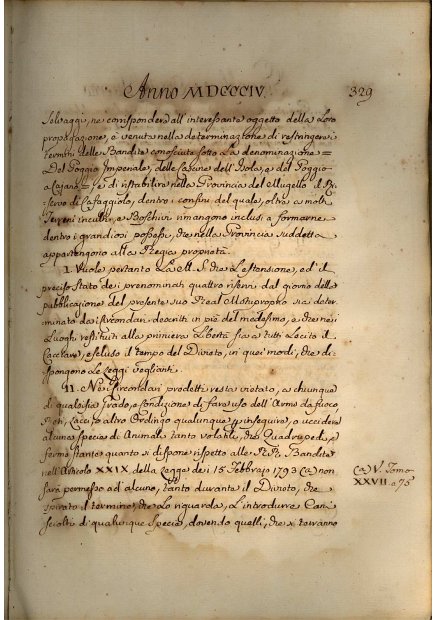 Anno MDCCCIV. 329
Selvaggi, ne corrisponder all' interessante oggetto della Loro
propagazione, è venuta nella determinazione di restringere i
Termini delle Bandite conosciute sotto La denominazione =
Del Poggio Imperiale, delle Cascine dell' Isola, e del Poggio
a Cajano =, e di ristabilire nella Provincia del Mugello il Ri
servo di Cafaggiolo, dentro i confini del quale, oltre a molti
Terreni inculti, e Boschivi rimangono inclusi a formarne
dentro i grandiosi possessi, che nella Provincia suddetta
appartengono alla Regia proprietà.
I. Vuole pertanto La M. S. che L'estensione, ed il
preciso stato dei prenominati quattro riservi dal giorno della
pubblicazione del presente suo Real Motuproprio sia deter
minato dai circondari descritti in piè del medesimo, e che nei
Luoghi restituiti alla primiera Libertà sia a tutti Lecito il
Cacciare, escluso il tempo del Divieto, in quei modi, che di
spongono Le Leggi veglianti.
II. Nei circondari predetti resta vietato, a chiunque
di qualsisia Grado, e condizione di fare uso dell' Arme da fuoco,
Reti, Lacci, o altro Ordingo qualunque p inseguire, o uccidere
alcuna specie di Animale tanto volatile, che Quadrupede, e
ferme stante quanto si dispone rispetto alle RR. Bandite
nell' Articolo XXIX. della Legge de i 15. Febbrajo 1793 (a) non
sarà permesso ad alcuno, tanto durante il Divieto, che
spirato il termine, che Lo riguarda, L'introdurre Cani
sciolti di qualunque specie, dovendo quelli, che si troveranno
(a) V. Tomo
XXVII. a 75